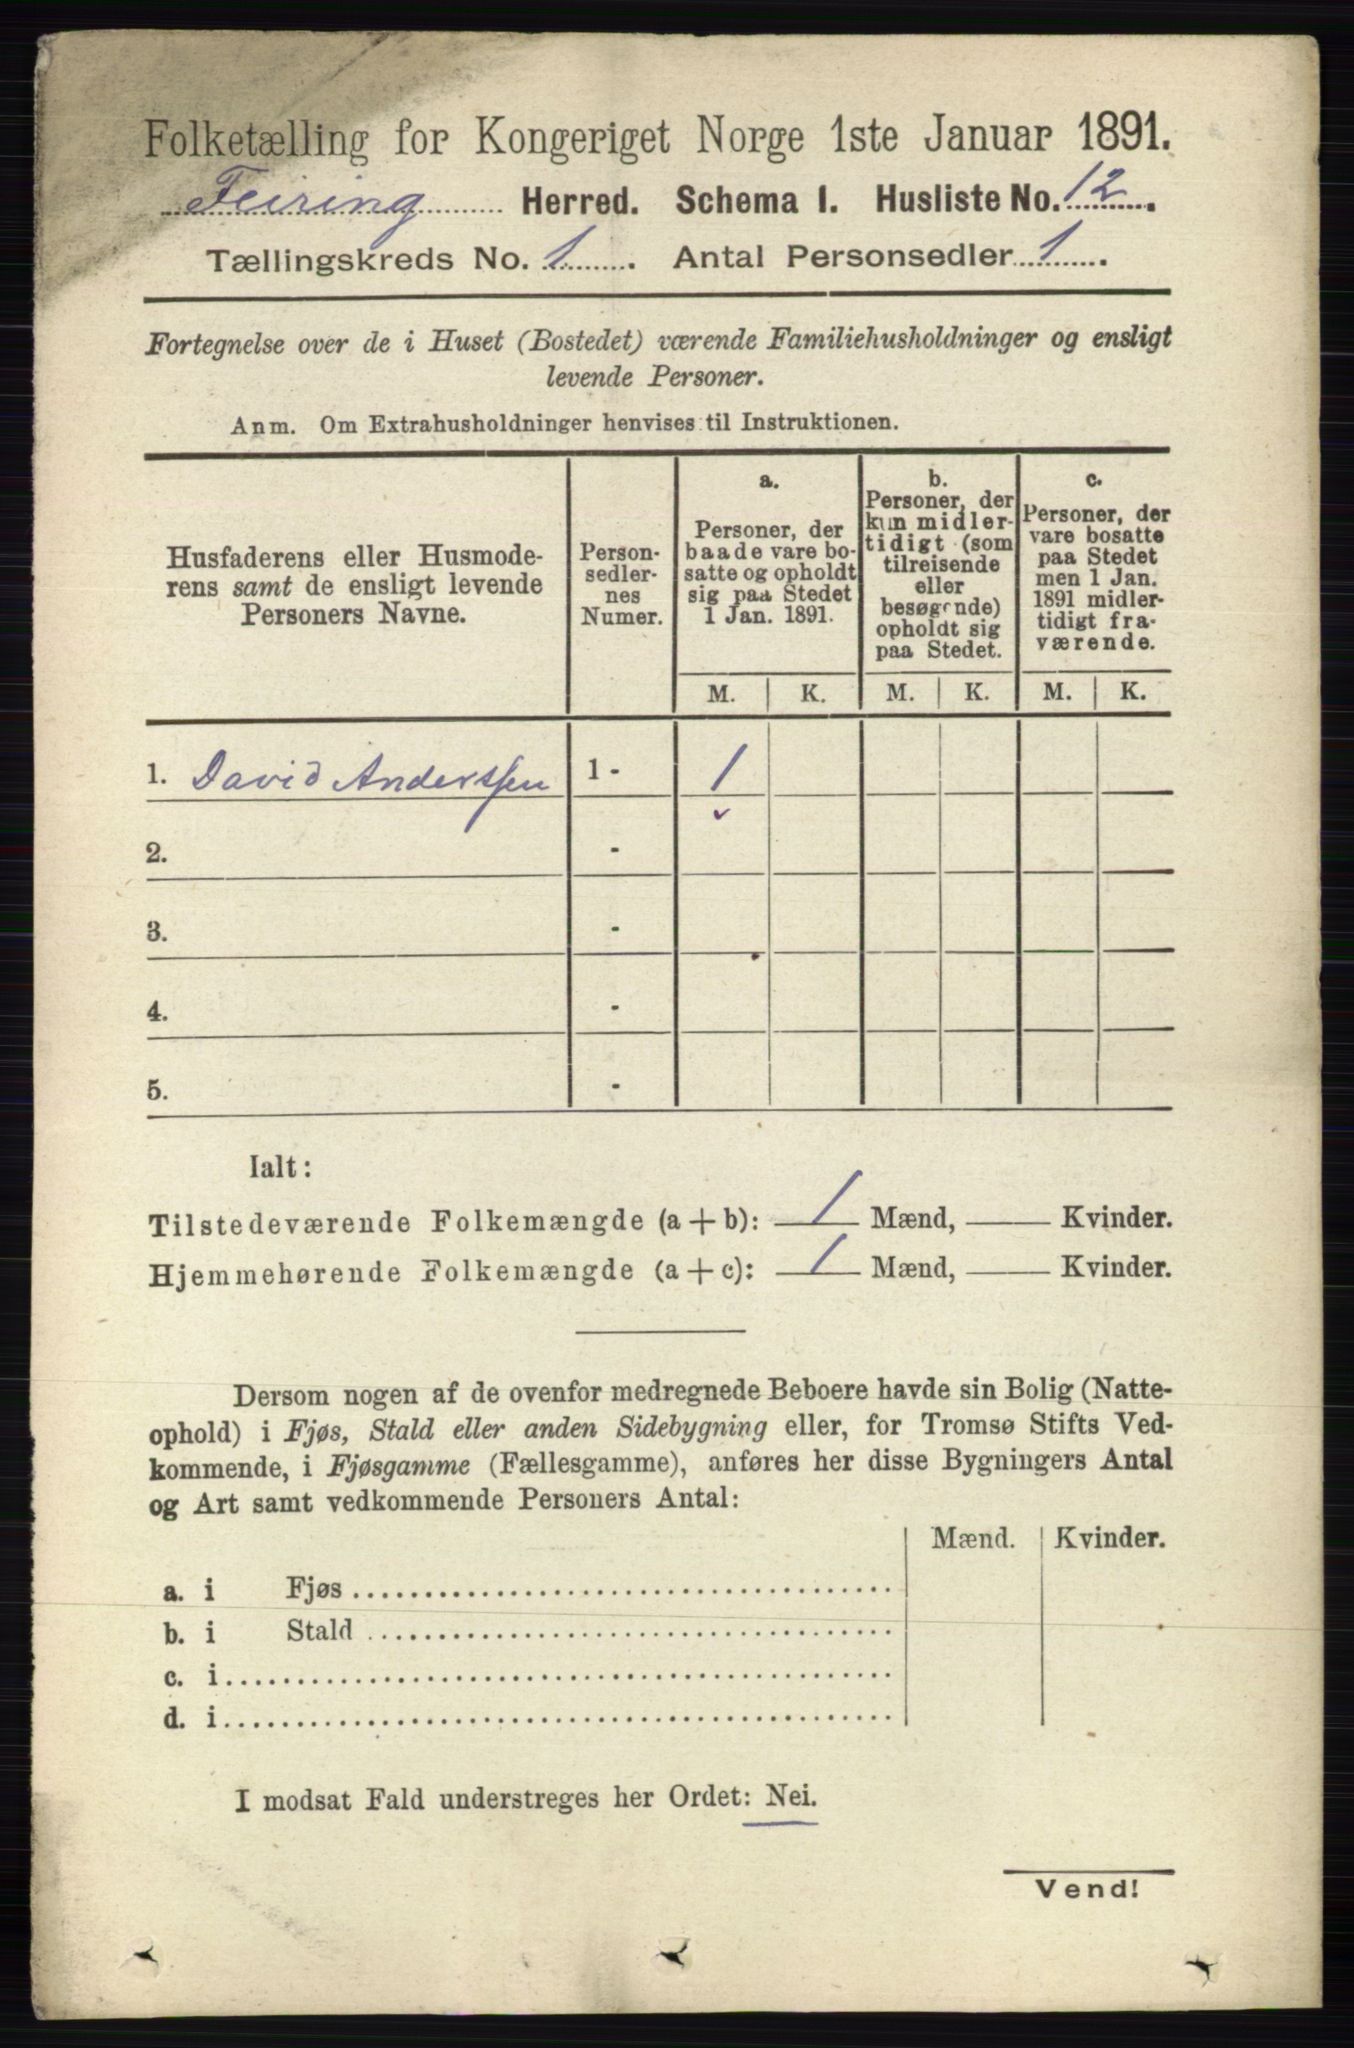 Folketælling for Kongeriget Norge 1ste Januar 1891.
Feiring Herred. Schema I. Husliste No. 12.
Tællingskreds No. 1. Antal Personsedler 1.
Fortegnelse over de i Huset (Bostedet) værende Familiehusholdninger og ensligt
levende Personer.
Anm. Om Extrahusholdninger henvises til Instruktionen.
Husfaderens eller Husmode-
rens samt de ensligt levende
Personers Navne.
Person-
sedler-
nes
Numer.
a.
Personer, der
baade vare bo-
satte og opholdt
sig paa Stedet
1 Jan. 1891.
b.
Personer, der
kun midler-
tidigt (som
tilreisende
eller
besøgende)
opholdt sig
paa Stedet.
c.
Personer, der
vare bosatte
paa Stedet
men 1 Jan.
1891 midler-
tidigt fra-
værende.
M. K. M. K. M. K.
1. David Anderssen 1 - 1
2. -
3. -
4. -
5. -
Ialt:
Tilstedeværende Folkemængde (a + b): 1 Mænd, Kvinder.
Hjemmehørende Folkemængde (a + c): 1 Mænd, Kvinder.
Dersom nogen af de ovenfor medregnede Beboere havde sin Bolig (Natte-
ophold) i Fjøs, Stald eller anden Sidebygning eller, for Tromsø Stifts Ved-
kommende, i Fjøsgamme (Fællesgamme), anføres her disse Bygningers Antal
og Art samt vedkommende Personers Antal:
Mænd. Kvinder.
a. i Fjøs
b. i Stald
c. i
d. i
I modsat Fald understreges her Ordet: Nei.
Vend!